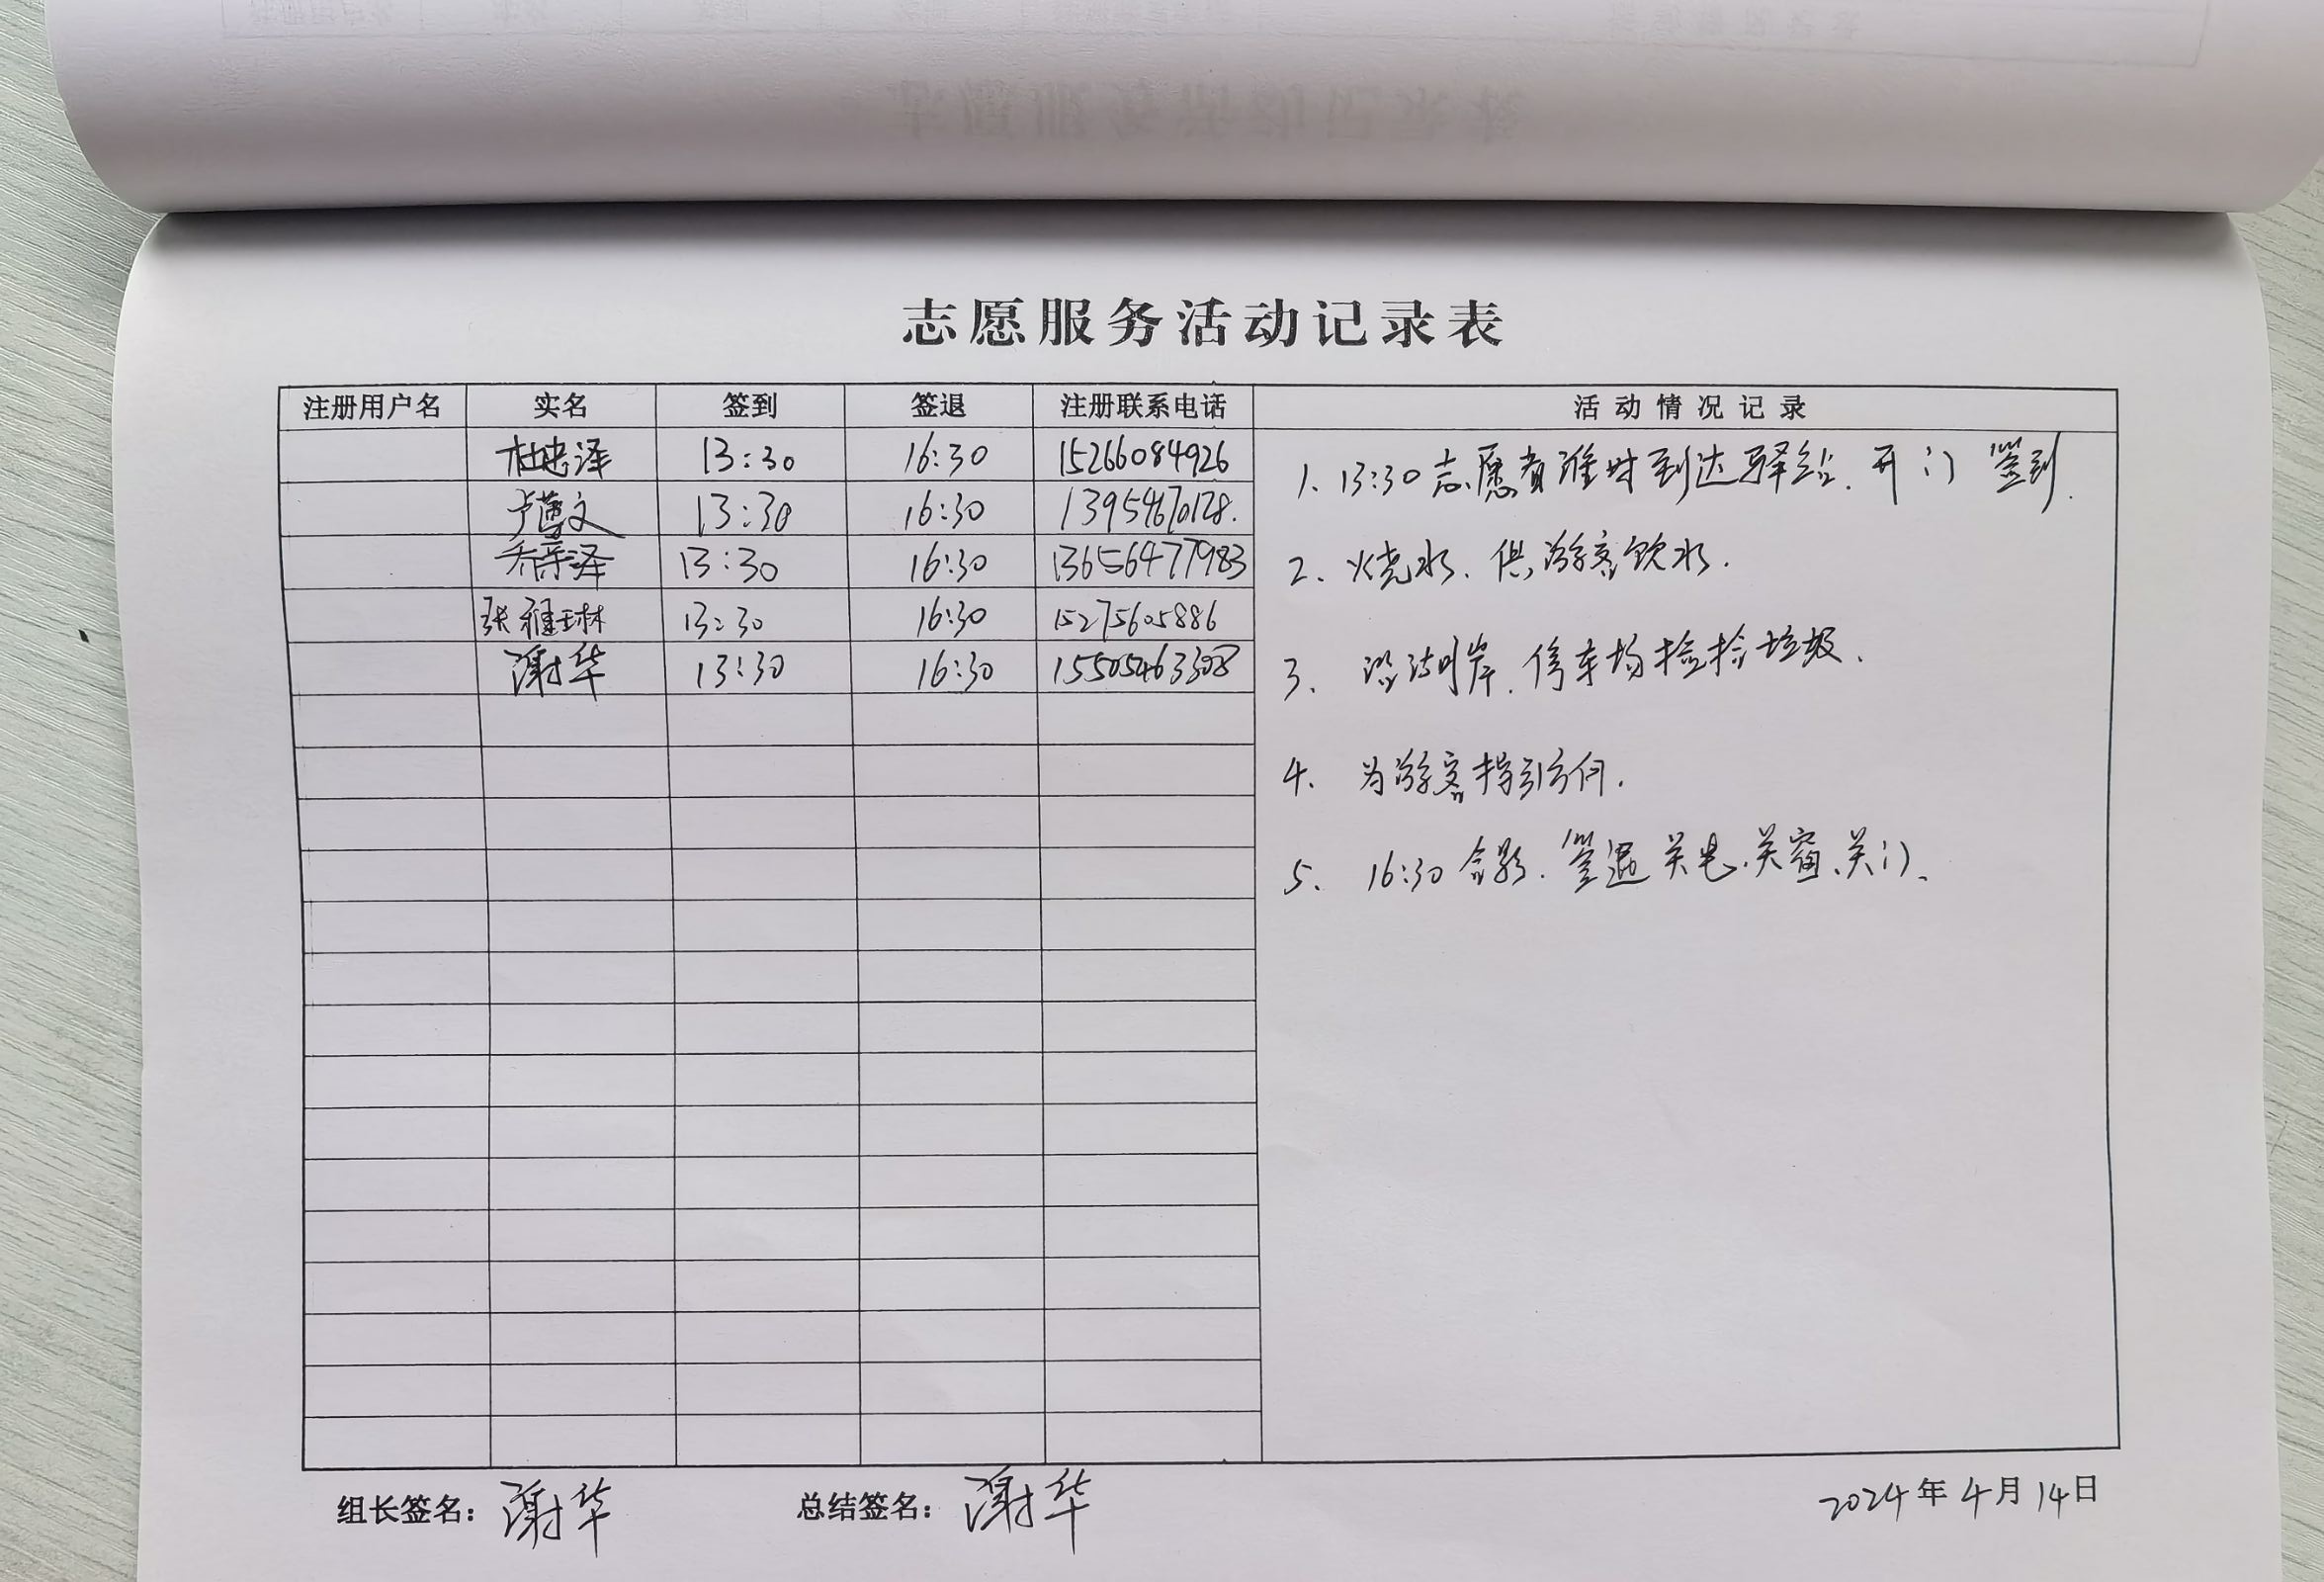 志愿服务活动记录表
注册用户名 实名 签到 签退 注册联系电话 活动情况记录
杜忠泽 13:30 16:30 15266084926
13:30 16:30 13954670128.
13:30 16:30 13656477983
张雅琳 13:30 16:30 15275605886
谢华 13:30 16:30 15505463308
1、13:30志愿者准时到达驿站、开门 签到.
2、烧水、供游客饮水.
3、沿湖岸、停车场捡捡垃圾、
4、为游客指引方向.
5、16:30合影、签退关电、关窗、关门、
组长签名: 谢华 总结签名: 谢华 2024年4月14日